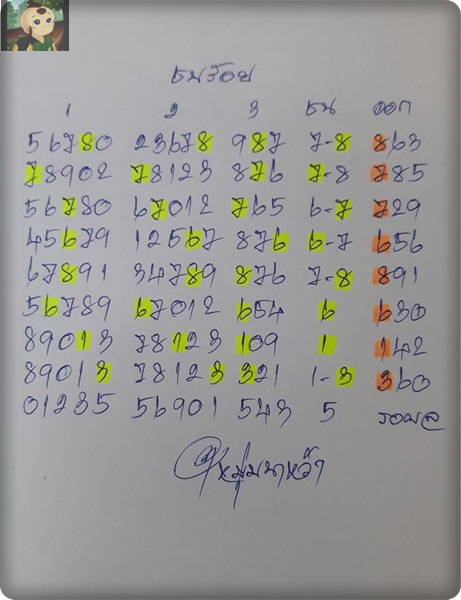 ชนร้อย
1 2 3 ชน ออก
56780 23678 987 7-8 863
78902 78123 876 7-8 785
56780 67012 765 6-7 729
45679 12567 876 6-7 656
67891 34789 876 7-8 891
56789 67012 654 6 630
89013 78123 109 1 142
89013 78123 321 1-3 360
01235 56901 543 5 รอผล